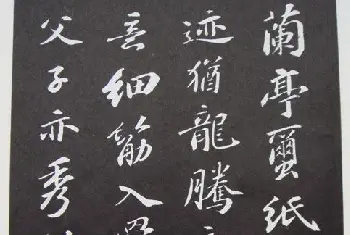 蘭亭蠒紙
迹猶龍騰
意細筋入
父子亦秀